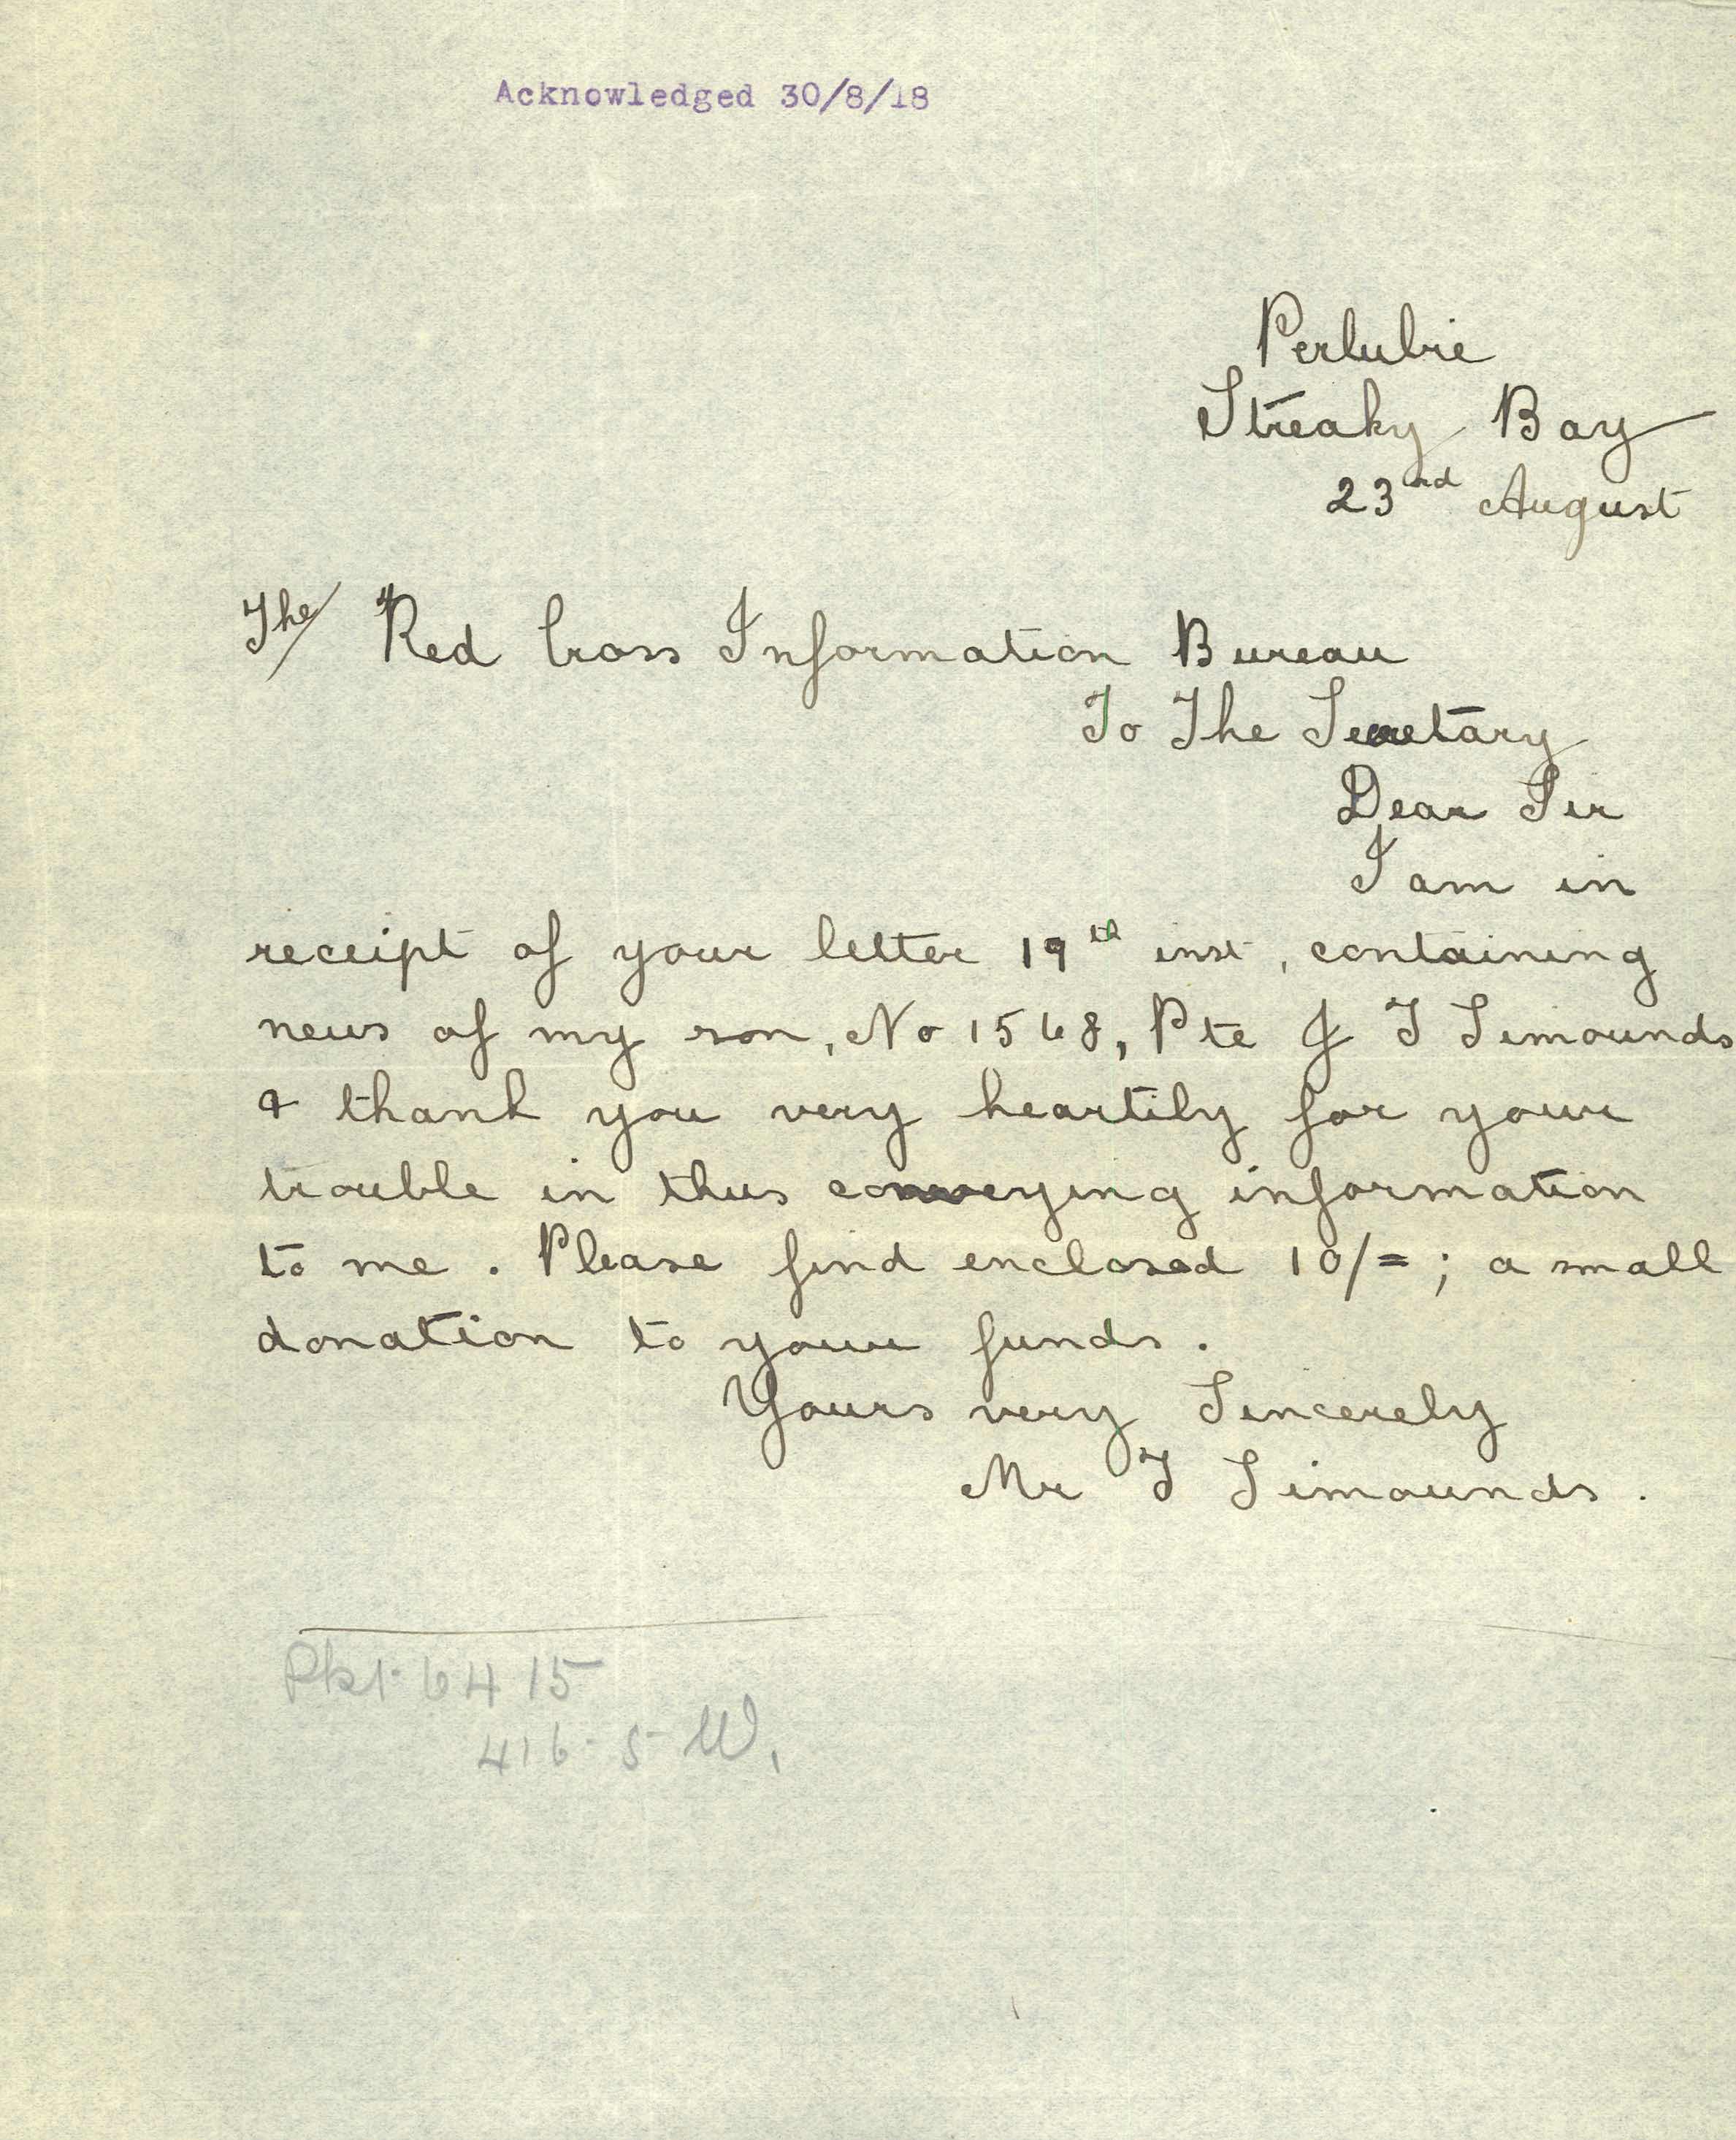 Acknowledged 30/8/18
Perlubie
Streaky Bay
23rd August
The/ Red Cross Information Bureau
To The Secretary
Dear Sir
I am in
receipt of your letter 19th inst, containing
news of my son, No 1568, Pte J T Simounds
& thank you very heartily for your
trouble in thus conveying information
to me. Please find enclosed 10/=; a small
donation to your funds.
Yours very Sincerely
Mr T Simounds.
Pkt 6415
416-5 W.